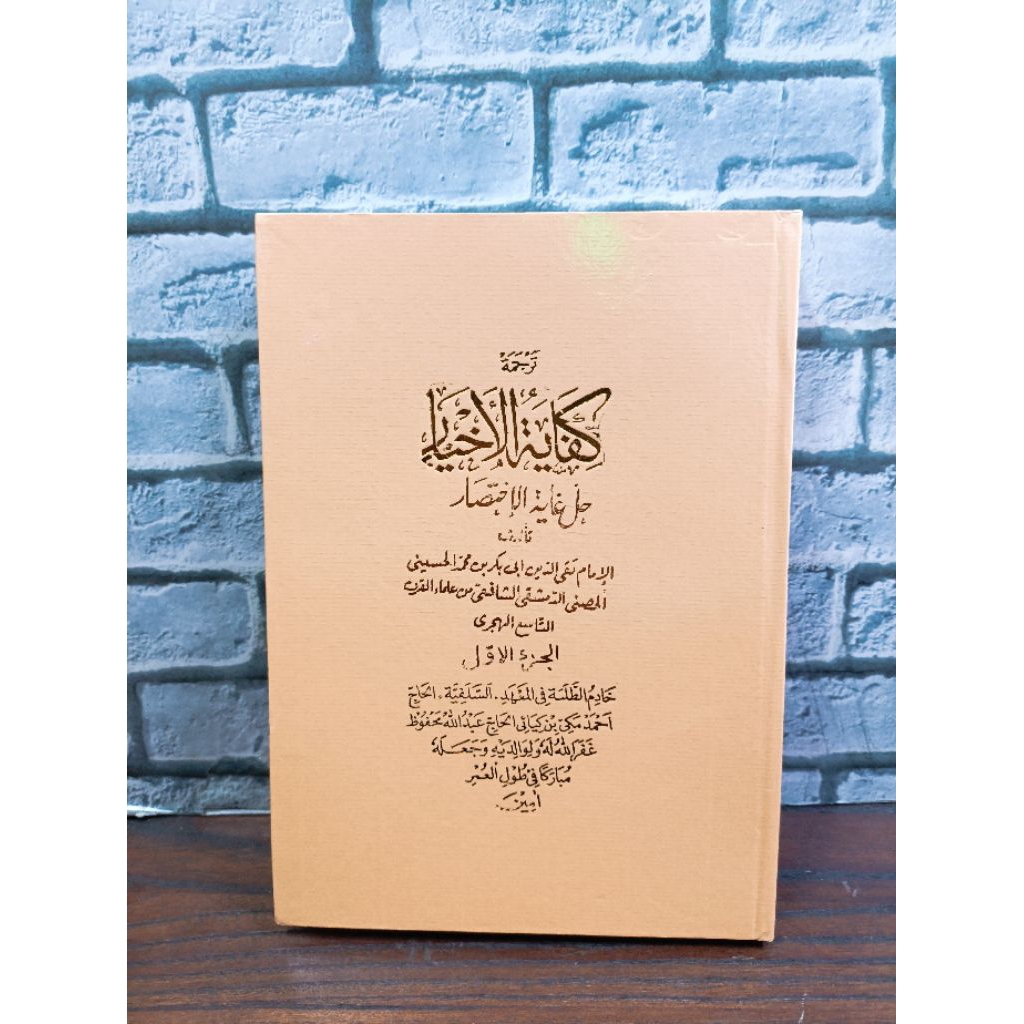 تَرْجَمَةْ
كِفَايَةُ الْأَخْيَارِ
حل غاية الإختصار
تأليف
الإمام تقى الدين ابى بكر بن محمد الحسينى
الحصنى الدمشقى الشافعى من علماء القرن
التاسع الهجرى
الجزء الاوّل
خَادِمُ الطَّلَبَةِ فِى الْمَعْهَدِ . السَّلَفِيَّةِ . الحَاجّ
اَحْمَدْ مَكِّى بْن كِيَاهِى الحَاجّ عَبْدُ اللّٰه مَحْفُوظْ
غَفَرَ اللّٰهُ لَهُ وَلِوَالِدَيْهِ وَجَعَلَهُ
مُبَارَكًا فِى طُوْلِ الْعُمْرِ
اٰمِيْن